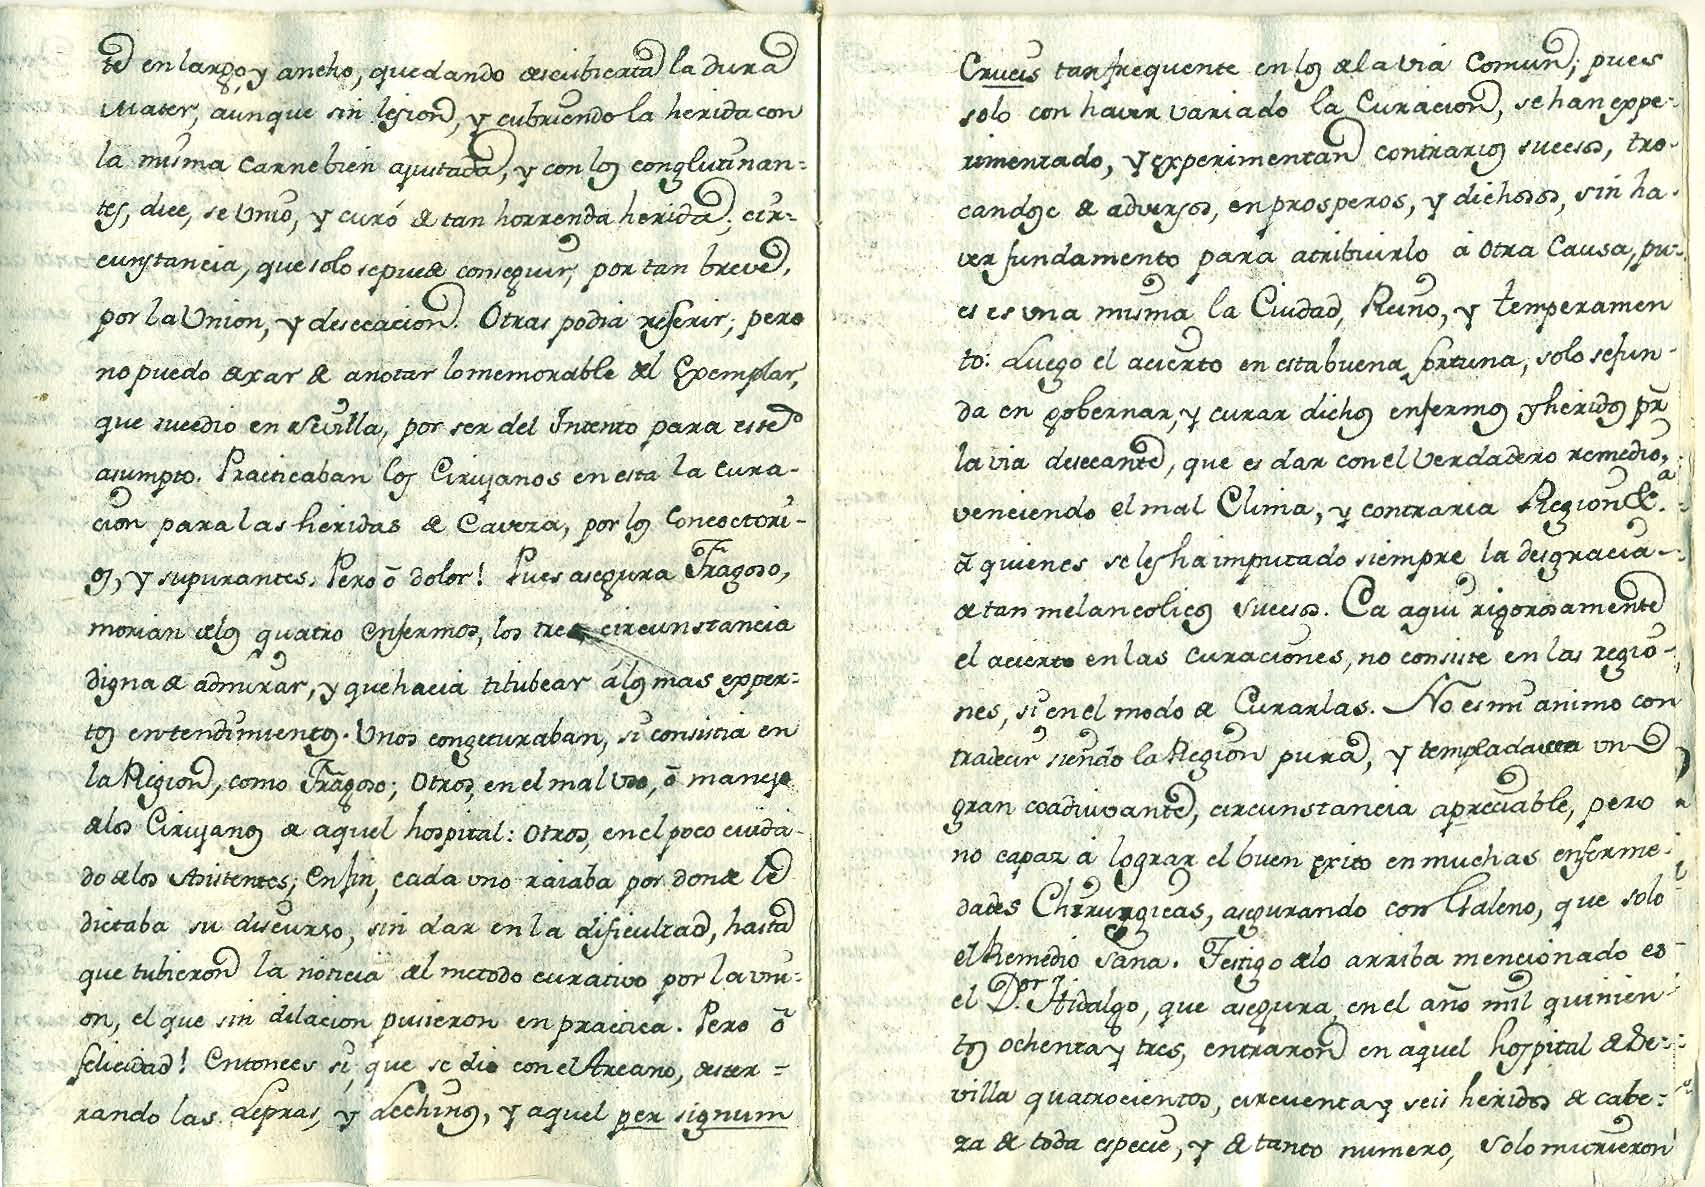 te en largo, y ancho, quedando descubierta la dura
Mater, aunque sin lesion, y cubriendo la herida con
la misma carne bien ajustada, y con los conglutinan=
tes, dice, se unio, y curó de tan horrenda herida; cir=
cunstancia, que solo se puede conseguir, por tan breve,
por la Union, y desecacion. Otras podia referir; pero
no puedo dexar de anotar lo memorable del Exemplar,
que sucedio en Sevilla, por ser del Intento para este
asumpto. Practicaban los Cirujanos en esta la cura-
cion para las heridas de Caveza, por los Concoctori-
os, y supurantes. Pero ô dolor! Pues asegura Fragoso,
morian de los quatro enfermos, los tres, circunstancia
digna de admirar, y que hacia titubear á los mas exper=
tos entendimientos. Unos congeturaban, si consistia en
la Region, como Fragoso; Otros, en el mal uso, ô manejo
de los Cirujanos de aquel hospital: Otros, en el poco cuida-
do de los Asistentes; en fin, cada uno raiaba por donde le
dictaba su discurso, sin dar en la dificultad, hasta
que tubieron la noticia del metodo curativo por la uni-
on, el que sin dilacion pusieron en practica. Pero ô
felicidad! Entonces si, que se dio con el Arcano, dester=
rando las lepras, y lechinos, y aquel per signum
Crucis tan frequente en los de la via Comun; pues
solo con haver variado la Curacion, se han expe-
rimentado, y experimentan contrarios sucesos, tro-
candose de adversos, en prosperos, y dichosos, sin ha-
ver fundamento para atribuirlo â otra Causa, pu-
es es una misma la Ciudad, Reino, y temperamen
to: Luego el acierto en esta buena fortuna, solo se fun-
da en gobernar, y curar dichos enfermos y heridos pr
la via desecante, que es dar con el verdadero remedio,
venciendo el mal Clima, y contraria Region &a.
â quienes se les ha imputado siempre la desgracia
de tan melancolicos sucesos. Ea aqui rigorosamente
el acierto en las curaciones, no consiste en las regio-
nes, si en el modo de Curarlas. No es mi animo con
tradecir siendo la Region pura, y templada un
gran coadiuvante, circunstancia apreciable, pero
no capaz â lograr el buen exito en muchas enferme-
dades Chirurgicas, asegurando con Galeno, que solo
el Remedio sana. Testigo de lo arriba mencionado es
el Dor Hidalgo, que asegura, en el año mil quinien
tos ochenta y tres, entraron en aquel hospital de Se=
villa quatrocientos, cincuenta y seis heridos de cabe=
za de toda especie, y de tanto numero, solo murieron